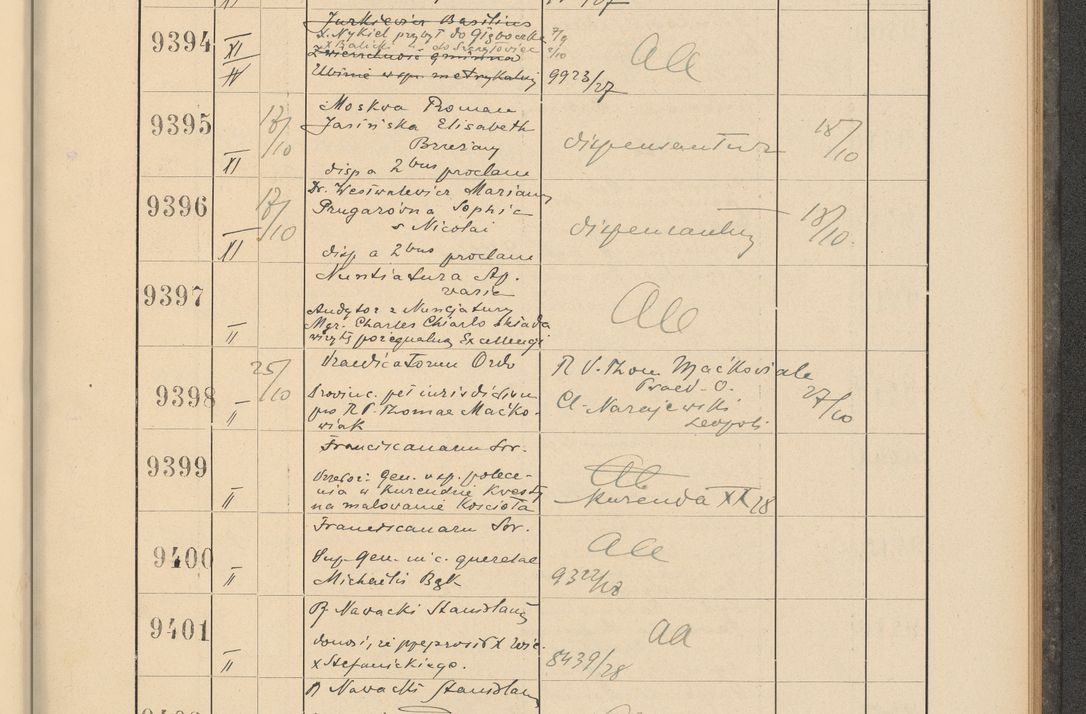 9394
XI
IV
Jurkiewicz Basilius
x. Nykiel przybył do 7/9
x Balicki " do 2/10
Zwierzchność gminna
w spr. metrykalnej 9923/27
aa
9395
XI
18/10
Moskwa Roman
Jasińska Elisabeth
Brzeżany
disp a 2bus proclam
dispensantur
18/10
9396
XI
18/10
Dr. Marianus
Prugarówna Sophie
s Nicolai
disp a 2bus proclam
dispensantur
18/10
9397
"
Nuntiatura Ap.
Varie
Audytor z Nuncjatury
Mgr. Charles Chiarlo składa
wizytę pożegnalną Excellencji
aa
9398
"
25/10
Praedicatorum Ordo
Provinc. pet jurisdictium
pro R. P. Thomae Maćko-
wiak
R. P. Thom Maćkowiak
Praed. O.
Cl. Narajewski
Leopoli
27/10
9399
"
Franciscanarum Sor.
Przełoż. Gen. w sp. polece-
nia w kurendzie kwesty
na malowanie Kościoła
aa
Kurenda XX 28
9400
"
Franciscanarum Sor.
Sup. Gen. querelae
Michaelis Bąk
aa
9322/28
9401
"
P. Nawacki Stanislaus
donosi, że przeprosił X Wic.
x Stefanickiego.
aa
8439/28
P. Nawacki Stanislaus